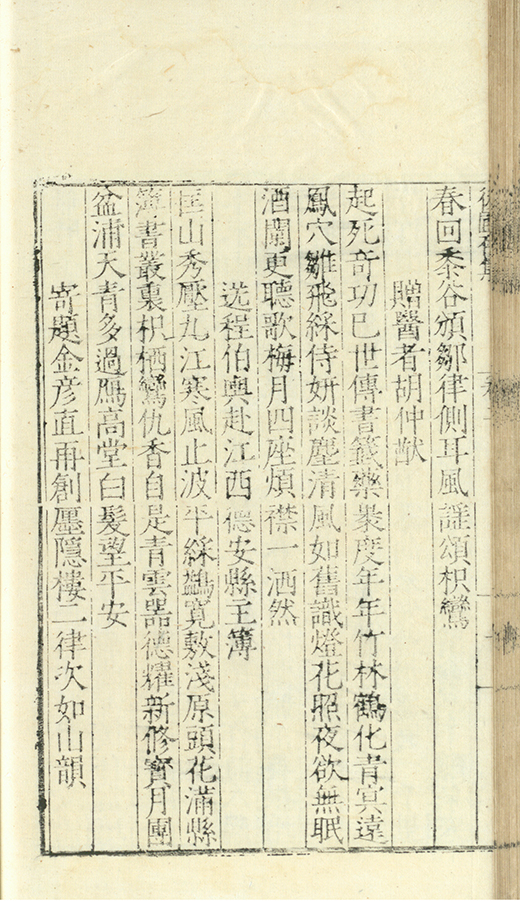 春回黍谷頒鄒律側耳風謡頌枳鸞
贈醫者胡仲猷
起死奇功已世傳書籤藥褁度年年竹林鶴化青冥遠
鳳穴雛飛綵侍妍談麈清風如舊識燈花照夜欲無眠
酒闌更聽歌梅月四座煩襟一洒然
送程伯輿赴江西德安縣主簿
匡山秀壓九江寒風止波平綵鷁寛敷淺原頭花滿縣
簿書叢裏枳栖鸞仇香自是青雲器德耀新修寳月團
盆浦天青多過鴈高堂白髮望平安
寄題金彦直再創廛隱樓二律次如山韻